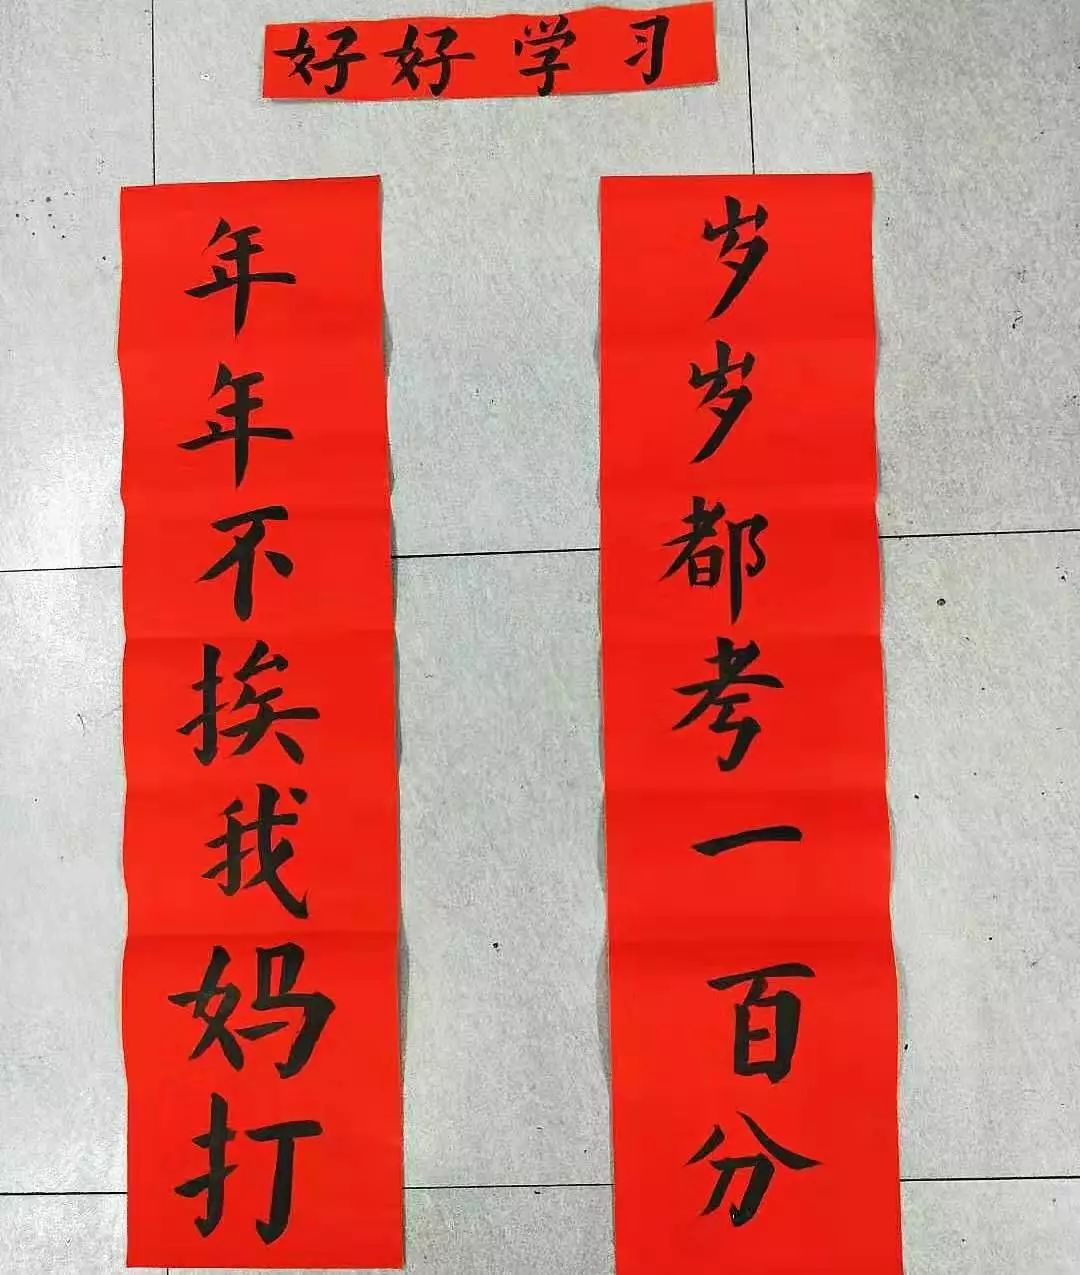 好好学习
年年不挨我妈打
岁岁都考一百分